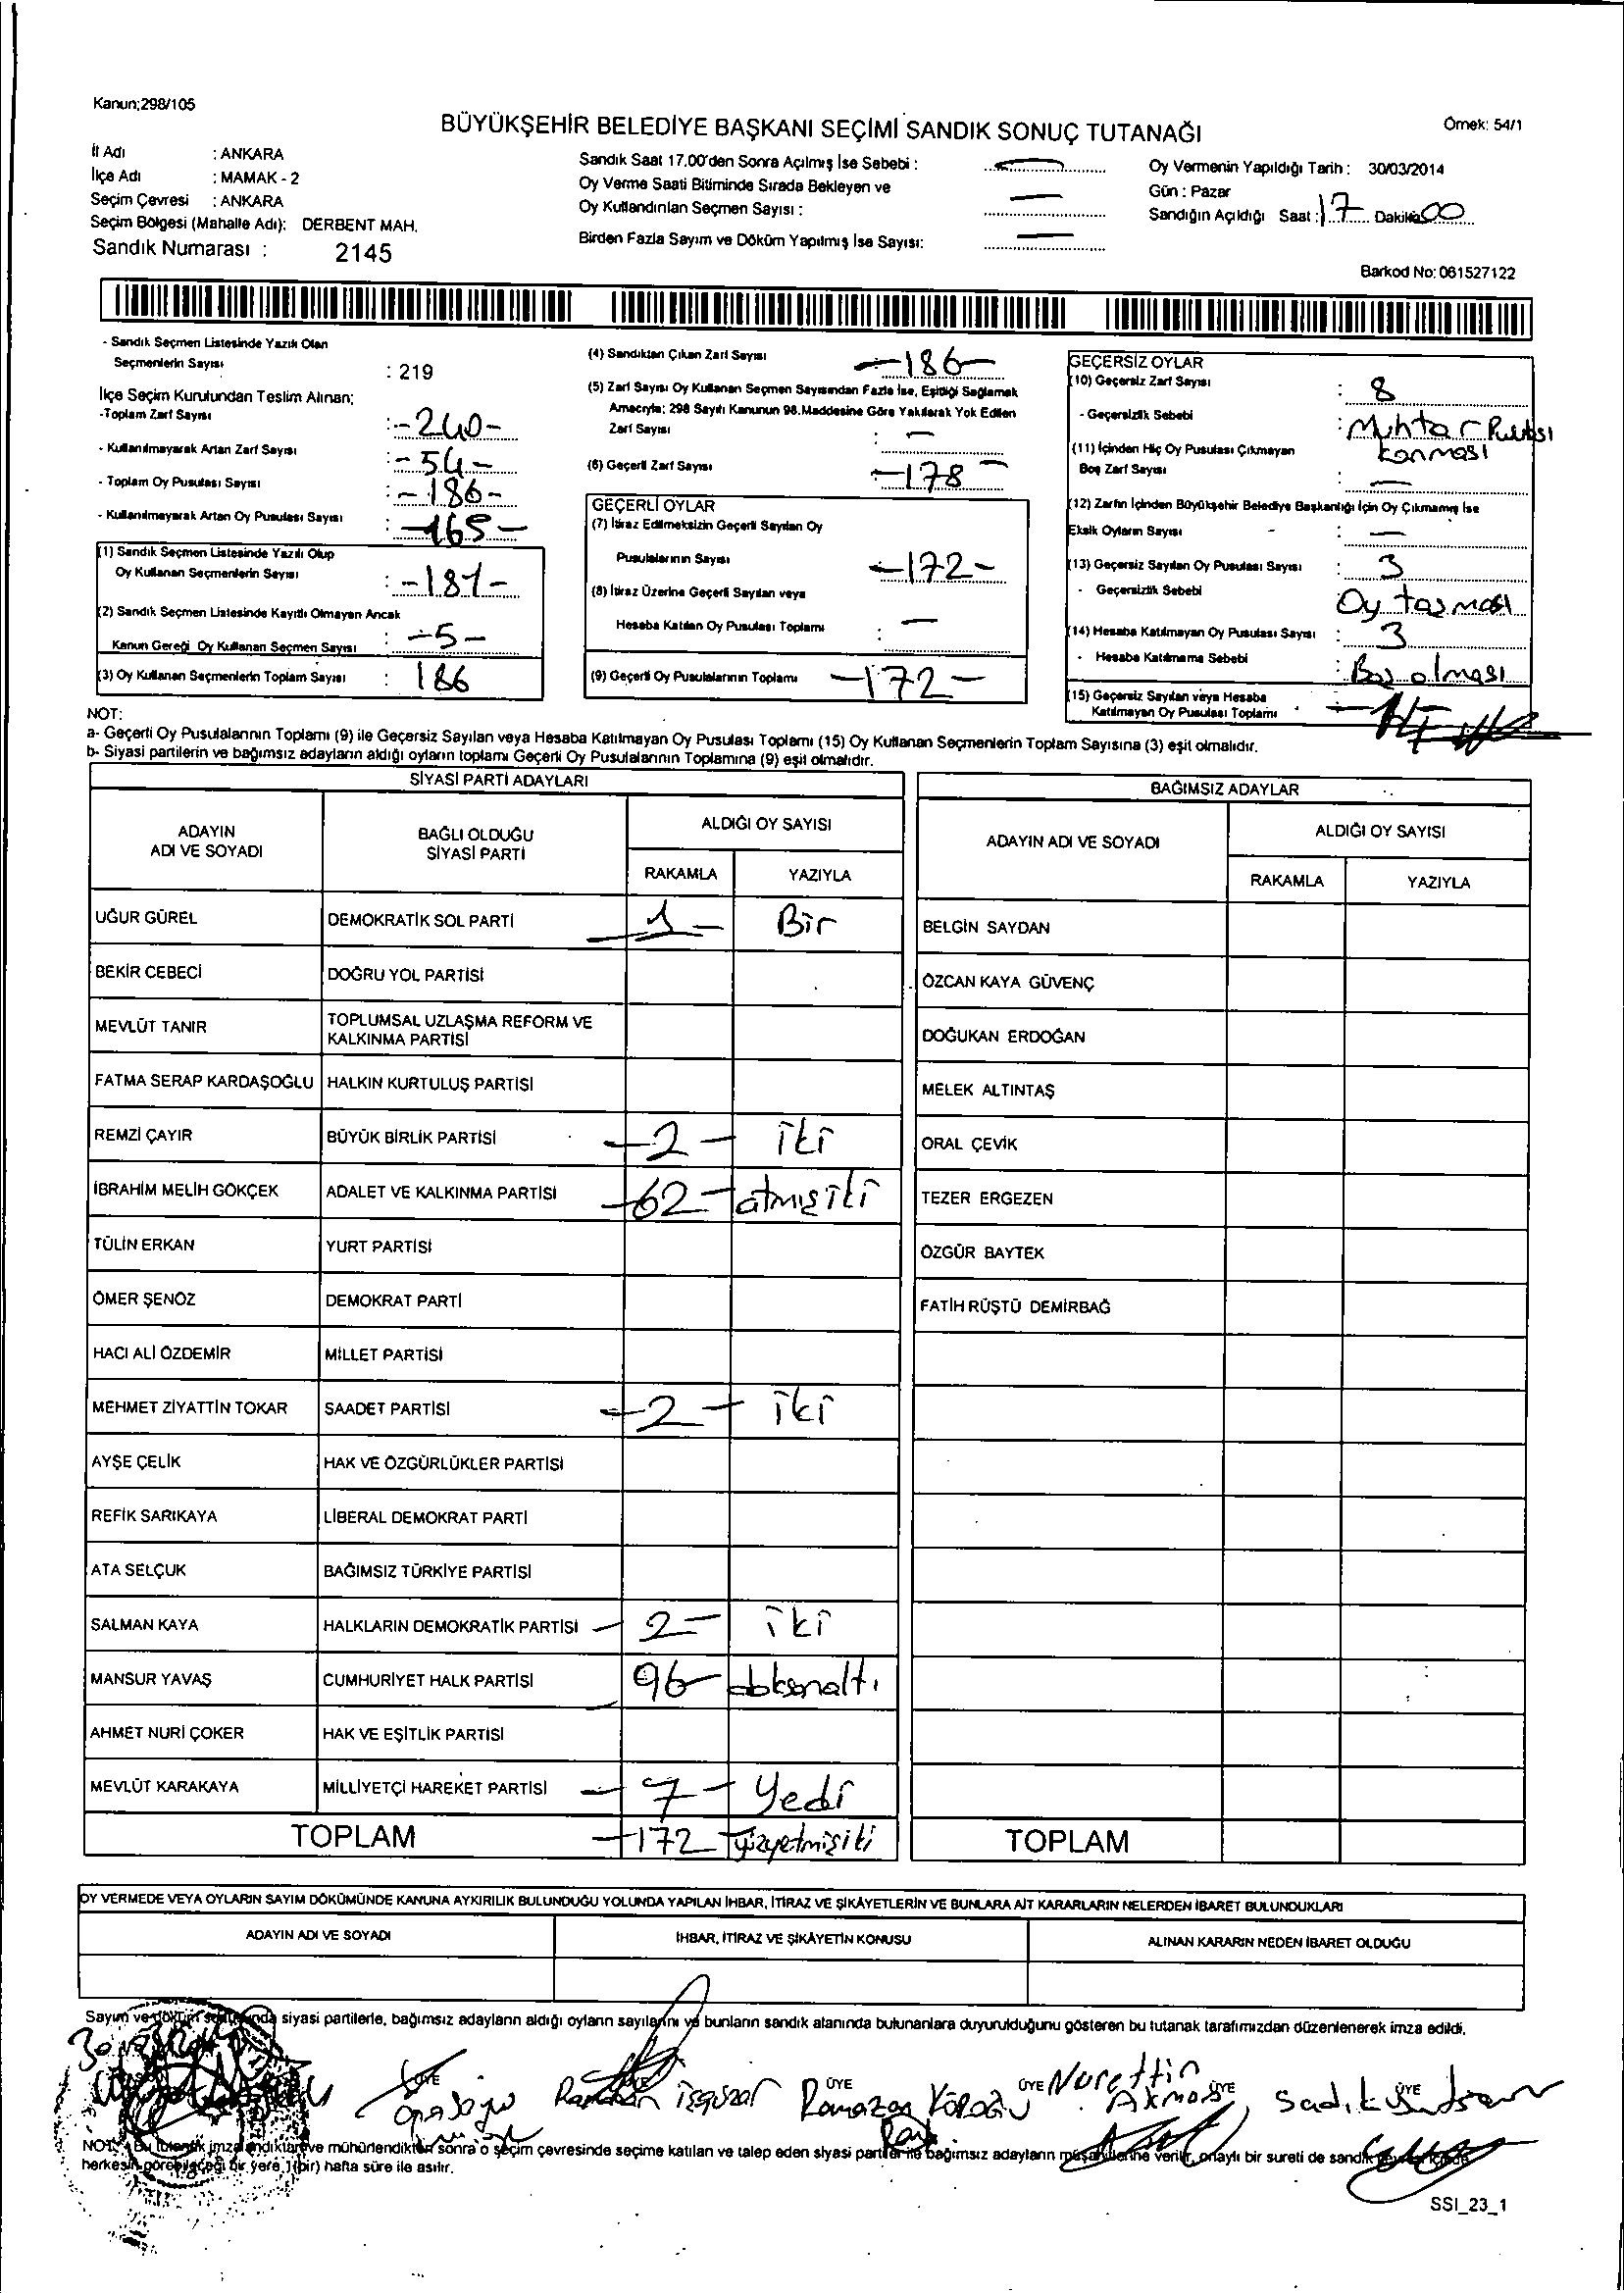 Kanun;298/105
BÜYÜKŞEHİR BELEDİYE BAŞKANI SEÇİMİ SANDIK SONUÇ TUTANAĞI
Örnek: 54/1
İl Adı : ANKARA
İlçe Adı : MAMAK - 2
Seçim Çevresi : ANKARA
Seçim Bölgesi (Mahalle Adı): DERBENT MAH.
Sandık Numarası : 2145
Sandık Saat 17.00'den Sonra Açılmış İse Sebebi : —
Oy Verme Saati Bitiminde Sırada Bekleyen ve
Oy Kullandırılan Seçmen Sayısı : —
Birden Fazla Sayım ve Döküm Yapılmış İse Sayısı: —
Oy Vermenin Yapıldığı Tarih : 30/03/2014
Gün : Pazar
Sandığın Açıldığı Saat : 17 Dakika 00
Barkod No: 061527122
- Sandık Seçmen Listesinde Yazılı Olan
Seçmenlerin Sayısı : 219
İlçe Seçim Kurulundan Teslim Alınan;
-Toplam Zarf Sayısı : -240-
- Kullanılmayarak Artan Zarf Sayısı : -54-
- Toplam Oy Pusulası Sayısı : -186-
- Kullanılmayarak Artan Oy Pusulası Sayısı : -165-
(1) Sandık Seçmen Listesinde Yazılı Olup
Oy Kullanan Seçmenlerin Sayısı : -181-
(2) Sandık Seçmen Listesinde Kayıtlı Olmayan Ancak
Kanun Gereği Oy Kullanan Seçmen Sayısı : -5-
(3) Oy Kullanan Seçmenlerin Toplam Sayısı : 186
(4) Sandıktan Çıkan Zarf Sayısı -186-
(5) Zarf Sayısı Oy Kullanan Seçmen Sayısından Fazla İse, Eşitliği Sağlamak
Amacıyla; 298 Sayılı Kanunun 98.Maddesine Göre Yakılarak Yok Edilen
Zarf Sayısı : —
(6) Geçerli Zarf Sayısı -178-
GEÇERLİ OYLAR
(7) İtiraz Edilmeksizin Geçerli Sayılan Oy
Pusulalarının Sayısı -172-
(8) İtiraz Üzerine Geçerli Sayılan veya
Hesaba Katılan Oy Pusulası Toplamı : —
(9) Geçerli Oy Pusulalarının Toplamı -172-
GEÇERSİZ OYLAR
(10) Geçersiz Zarf Sayısı : 8
- Geçersizlik Sebebi : Muhtar Pulusı
konması
(11) İçinden Hiç Oy Pusulası Çıkmayan
Boş Zarf Sayısı : —
(12) Zarfın İçinden Büyükşehir Belediye Başkanlığı İçin Oy Çıkmamış İse
Eksik Oyların Sayısı - : —
(13) Geçersiz Sayılan Oy Pusulası Sayısı : 3
- Geçersizlik Sebebi Oy taşması
(14) Hesaba Katılmayan Oy Pusulası Sayısı : 3
- Hesaba Katılmama Sebebi : Boş olması
(15) Geçersiz Sayılan veya Hesaba
Katılmayan Oy Pusulası Toplamı :
NOT:
a- Geçerli Oy Pusulalarının Toplamı (9) ile Geçersiz Sayılan veya Hesaba Katılmayan Oy Pusulası Toplamı (15) Oy Kullanan Seçmenlerin Toplam Sayısına (3) eşit olmalıdır.
b- Siyasi partilerin ve bağımsız adayların aldığı oyların toplamı Geçerli Oy Pusulalarının Toplamına (9) eşit olmalıdır.
SİYASİ PARTİ ADAYLARI
ADAYIN ADI VE SOYADI BAĞLI OLDUĞU SİYASİ PARTİ ALDIĞI OY SAYISI
RAKAMLA YAZIYLA
UĞUR GÜREL DEMOKRATİK SOL PARTİ 1 - Bir
BEKİR CEBECİ DOĞRU YOL PARTİSİ
MEVLÜT TANIR TOPLUMSAL UZLAŞMA REFORM VE
KALKINMA PARTİSİ
FATMA SERAP KARDAŞOĞLU HALKIN KURTULUŞ PARTİSİ
REMZİ ÇAYIR BÜYÜK BİRLİK PARTİSİ -2- iki
İBRAHİM MELİH GÖKÇEK ADALET VE KALKINMA PARTİSİ -62- atmışiki
TÜLİN ERKAN YURT PARTİSİ
ÖMER ŞENÖZ DEMOKRAT PARTİ
HACI ALİ ÖZDEMİR MİLLET PARTİSİ
MEHMET ZİYATTİN TOKAR SAADET PARTİSİ -2- iki
AYŞE ÇELİK HAK VE ÖZGÜRLÜKLER PARTİSİ
REFİK SARIKAYA LİBERAL DEMOKRAT PARTİ
ATA SELÇUK BAĞIMSIZ TÜRKİYE PARTİSİ
SALMAN KAYA HALKLARIN DEMOKRATİK PARTİSİ -2- iki
MANSUR YAVAŞ CUMHURİYET HALK PARTİSİ 96- doksanaltı
AHMET NURİ ÇOKER HAK VE EŞİTLİK PARTİSİ
MEVLÜT KARAKAYA MİLLİYETÇİ HAREKET PARTİSİ -7- Yedi
TOPLAM -172- yüzyetmişiki
BAĞIMSIZ ADAYLAR
ADAYIN ADI VE SOYADI ALDIĞI OY SAYISI
RAKAMLA YAZIYLA
BELGİN SAYDAN
ÖZCAN KAYA GÜVENÇ
DOĞUKAN ERDOĞAN
MELEK ALTINTAŞ
ORAL ÇEVİK
TEZER ERGEZEN
ÖZGÜR BAYTEK
FATİH RÜŞTÜ DEMİRBAĞ
TOPLAM
OY VERMEDE VEYA OYLARIN SAYIM DÖKÜMÜNDE KANUNA AYKIRILIK BULUNDUĞU YOLUNDA YAPILAN İHBAR, İTİRAZ VE ŞİKÂYETLERİN VE BUNLARA AİT KARARLARIN NELERDEN İBARET BULUNDUKLARI
ADAYIN ADI VE SOYADI İHBAR, İTİRAZ VE ŞİKÂYETİN KONUSU ALINAN KARARIN NEDEN İBARET OLDUĞU
Sayım ve döküm siyasi partilerle, bağımsız adayların aldığı oyların sayılarını ve bunların sandık alanında bulunanlara duyurulduğunu gösteren bu tutanak tarafımızdan düzenlenerek imza edildi.
ÜYE ÜYE ÜYE ÜYE ÜYE
işgüzar Ramazan Nurettin Akmaşe Sadık
NOT: Bu tutanak imzalandıktan ve mühürlendikten sonra o seçim çevresinde seçime katılan ve talep eden siyasi partiler ile bağımsız adayların müşahitlerine verilir, onaylı bir sureti de sandık
herkesin görebileceği bir yere 1(bir) hafta süre ile asılır.
SSI_23_1